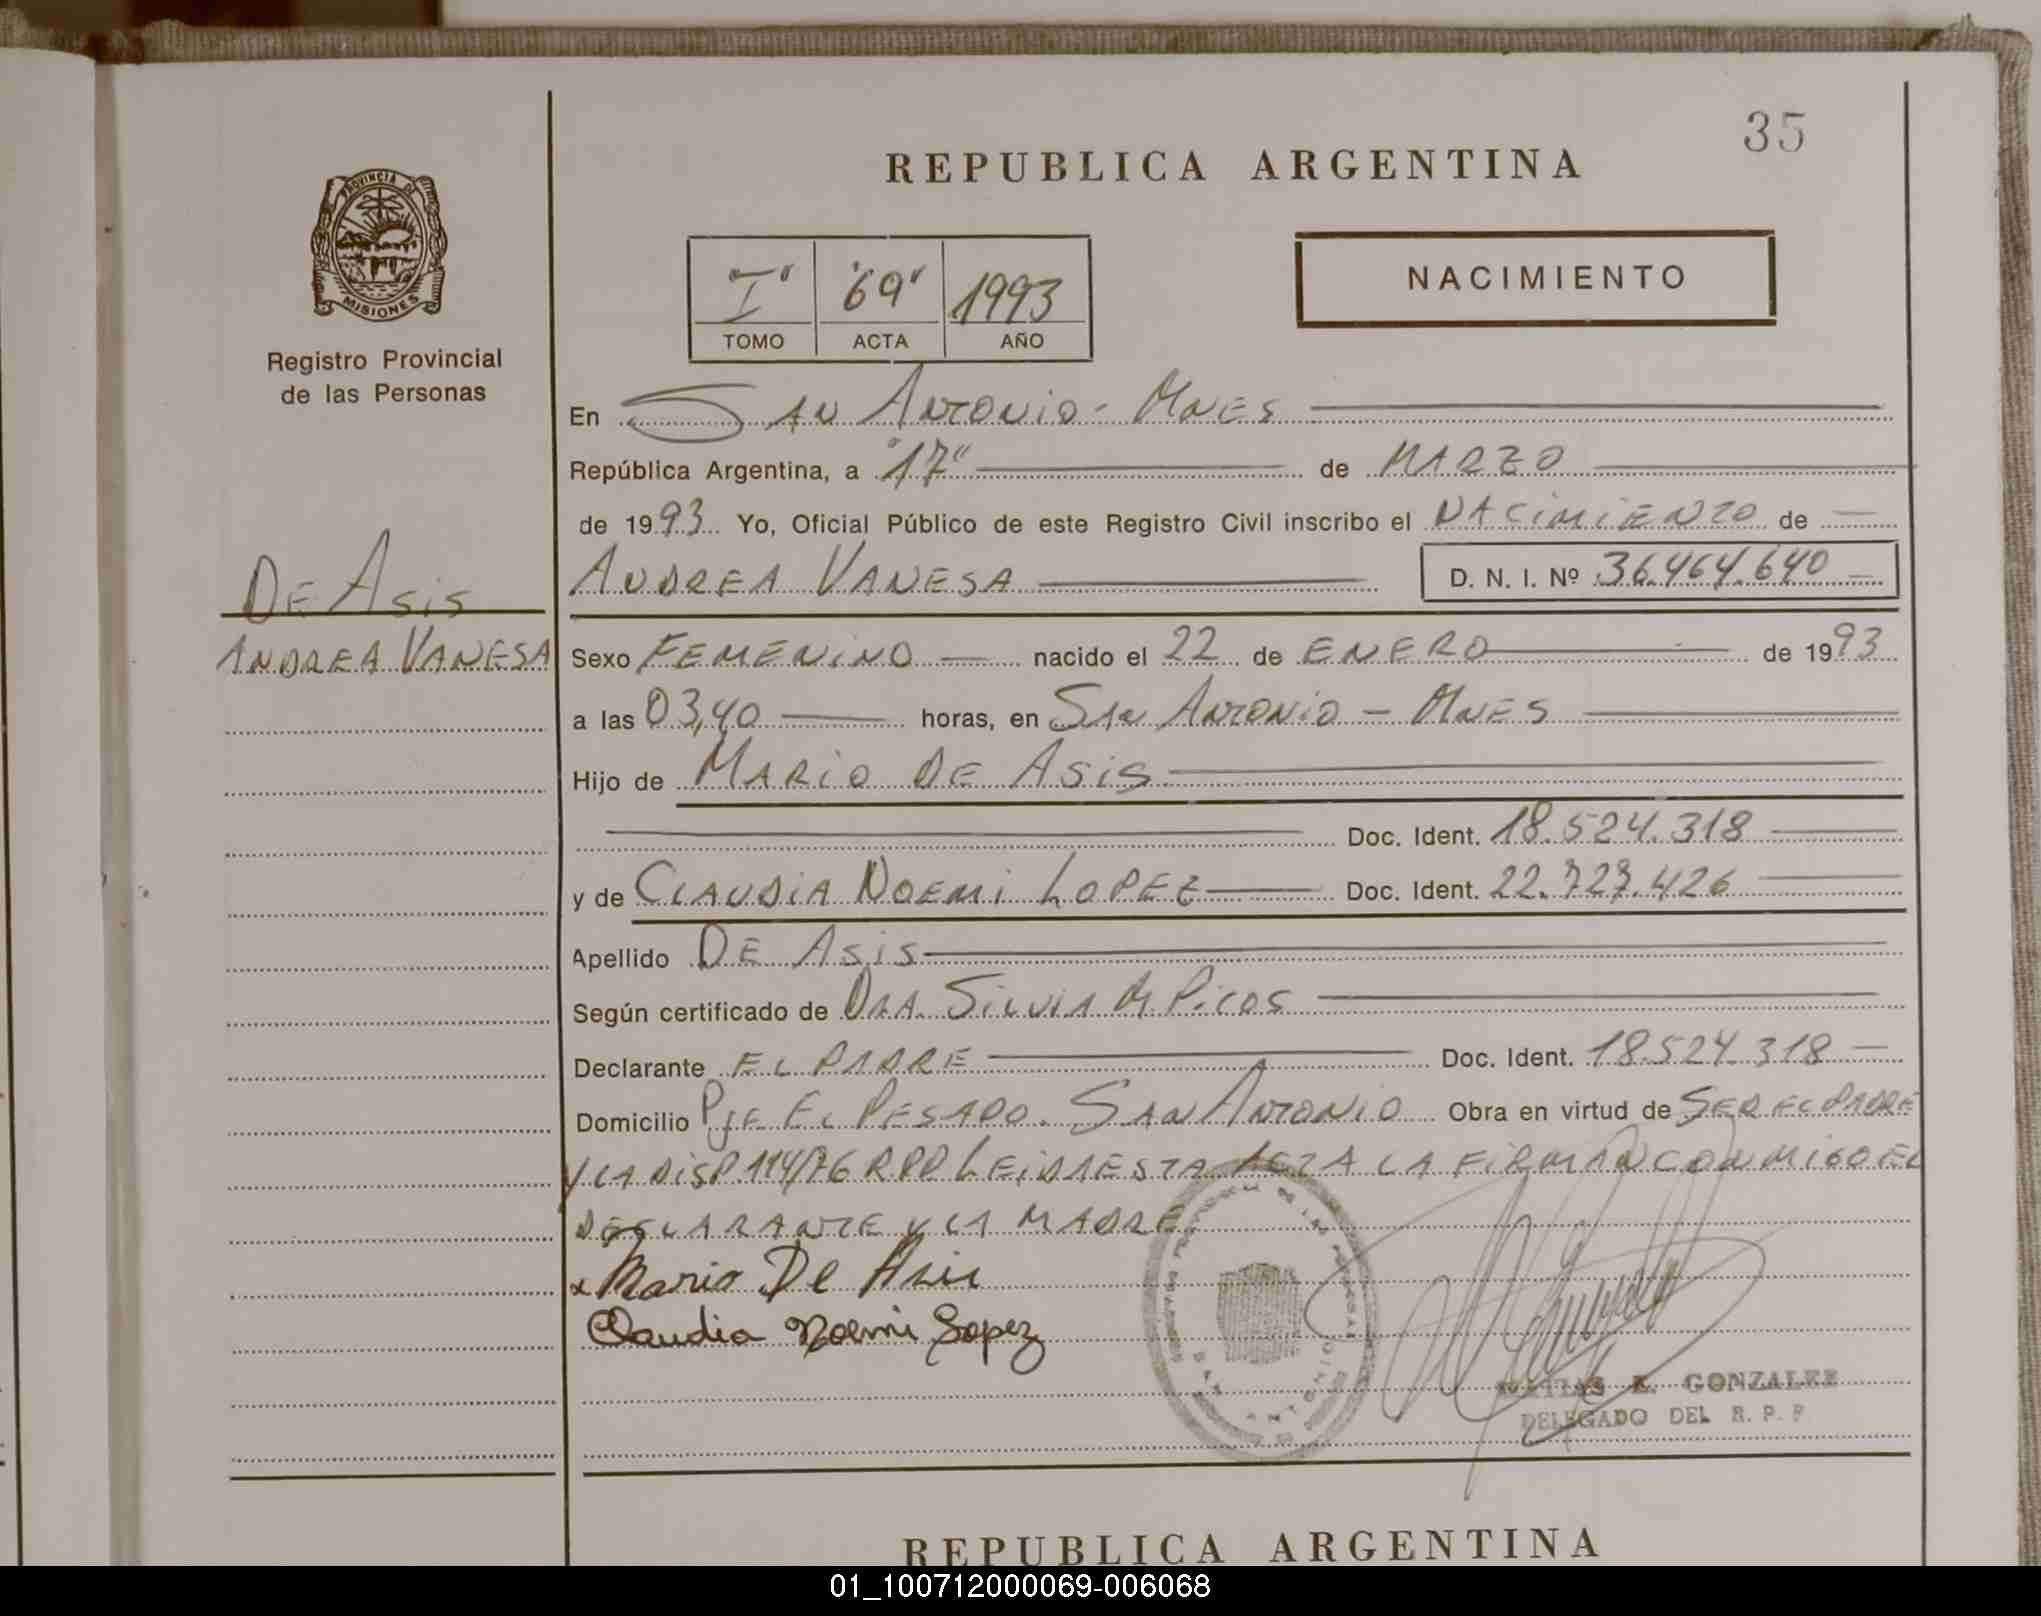 35
REPUBLICA ARGENTINA
PROVINCIA DE
MISIONES
Registro Provincial
de las Personas
"I" "69" 1993
TOMO ACTA AÑO
NACIMIENTO
En SAN ANTONIO - MNES
República Argentina, a "17" de MARZO
de 1993 Yo, Oficial Público de este Registro Civil inscribo el NACIMIENTO de
ANDREA VANESA D. N. I. Nº 36.464.640
DE ASIS
ANDREA VANESA
Sexo FEMENINO nacido el 22 de ENERO de 1993
a las 03,40 horas, en SAN ANTONIO - MNES
Hijo de MARIO DE ASIS
Doc. Ident. 18.524.318
y de CLAUDIA NOEMI LOPEZ Doc. Ident. 22.727.426
Apellido DE ASIS
Según certificado de DRA. SILVIA M PICOS
Declarante EL PADRE Doc. Ident. 18.524.318
Domicilio PJE EL PESADO. SAN ANTONIO Obra en virtud de SER EL PADRE
Y LA DISP. 114/76 RPP LEIDA ESTA ACTA LA FIRMAN CONMIGO EL
DECLARANTE Y LA MADRE.
x Mario De Asis
Claudia Noemi Lopez
GONZALEZ
DELEGADO DEL R. P. P
REPUBLICA ARGENTINA
01_100712000069-006068